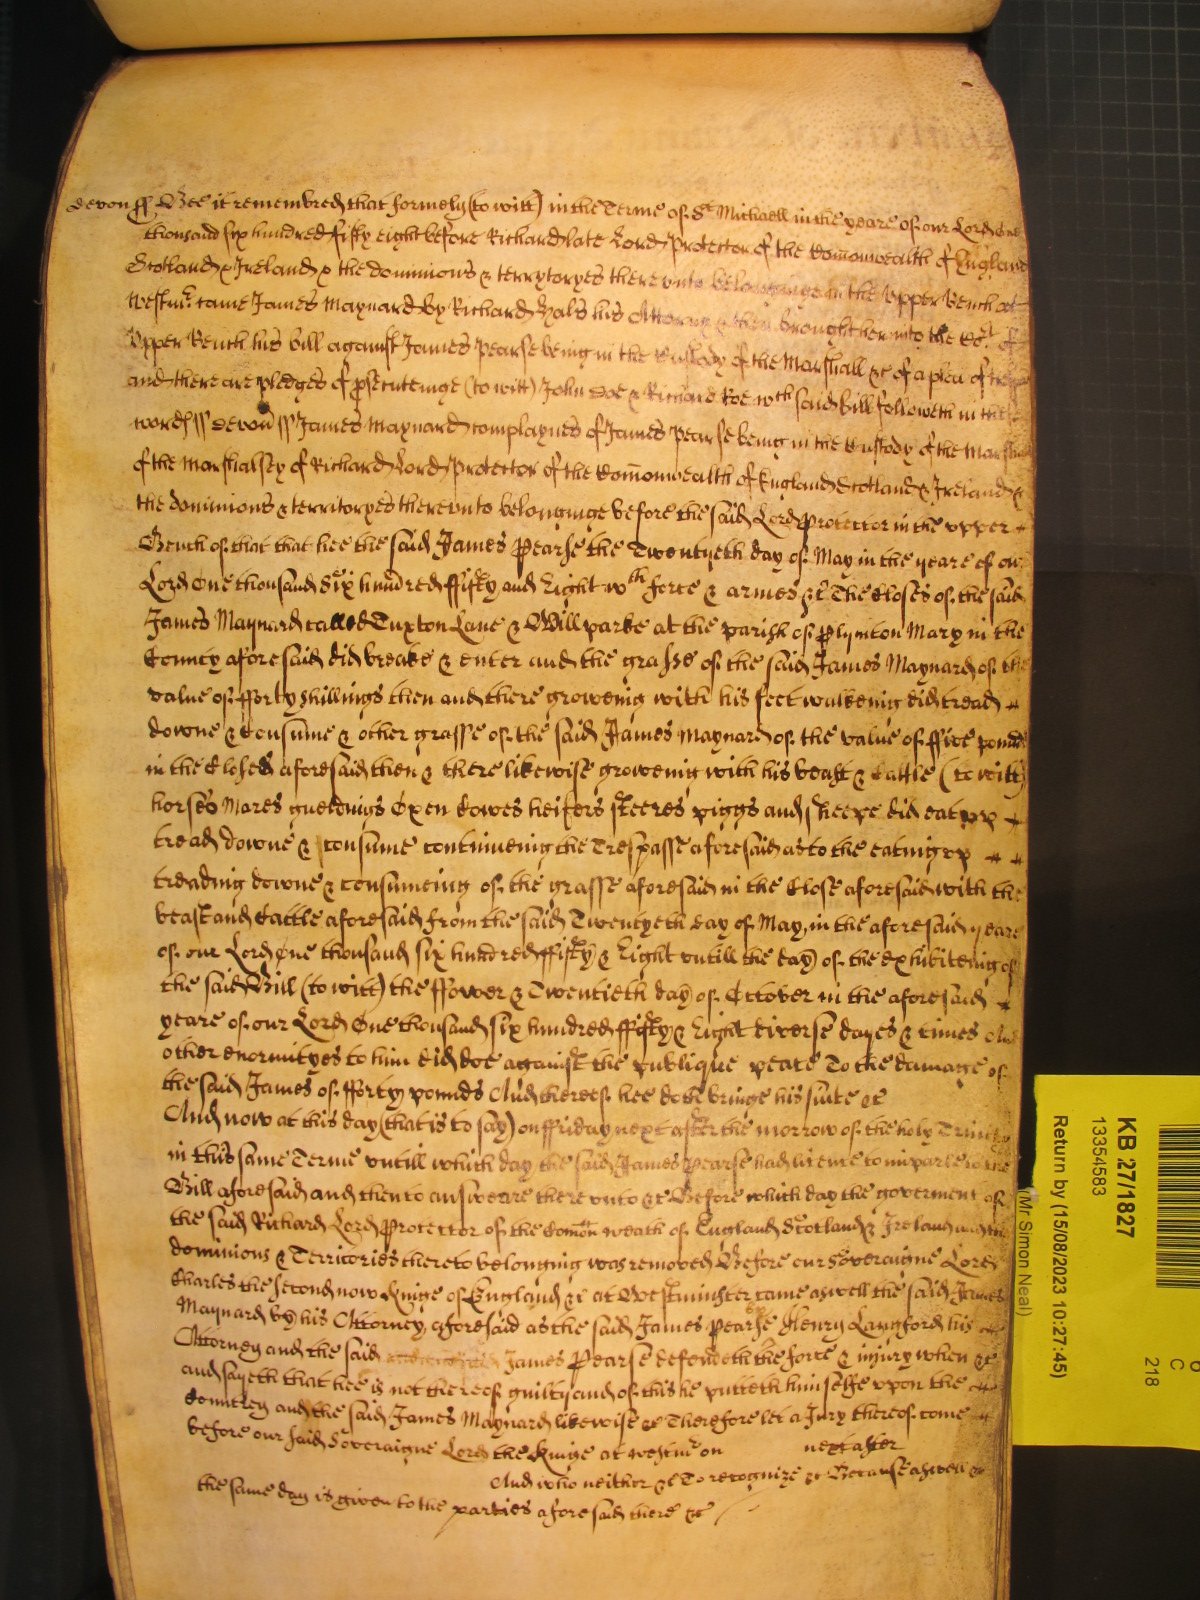 Devon ss Bee it remembred that formerly (to witt) in the Terme of St Michaell in the yeare of our Lord one
thousand six hundred fifty eight before Richard late Lord Protector of the Comonwealth of England
Scotland & Ireland & the dominions & terrytoryes thereunto belonginge in the Upper Bench at
Westmr. came James Maynard by Richard Hals his Attorny & then brought here into the Cot. of
Upper Bench his bill against James Pearse being in the Custody of the Marshall &c of a plea of trespas
and there are pledges of prsecuteinge (to witt) John Doe & Richard Roe wch said bill followeth in these
words ss Devon ss James Maynard complaynes of James Pearse being in the Custody of the Marshall
of the Marshalsey of Richard Lord Protector of the Comonwealth of England Scotland & Ireland &
the dominions & territoryes thereunto belonginge before the said Lord Protector in the upper
Bench of that that hee the said James Pearse the Twentyeth day of May in the yeare of our
Lord One thousand Six hundred ffifty and Eight wth force & armes &c The Closes of the said
James Maynard called Tuxton Lane & Will parke at the parish of Plymton Mary in the
County aforesaid did breake & enter and the grasse of the said James Maynard of the
value of fforty shillings then and there groweing with his feet walkeing did tread
downe & consume & other grasse of the said James Maynard of the value of ffive pounds
in the Closes aforesaid then & there likewise groweing with his beast & Cattle (to witt)
horses Mares gueldings Oxen Cowes heifers steeres piggs and sheepe did eat up
tread downe & consume continueing the Trespasse aforesaid as to the eating up
treading downe & consumeing of the grasse aforesaid in the Close aforesaid with the
beast and Cattle aforesaid from the said Twentyeth day of May, in the aforesaid yeare
of our Lord One thousand six hundred ffifty & Eight untill the day of the exhibiteing of
the said Bill (to witt) the ffower & Twentieth day of October in the aforesaid
yeare of our Lord One thousand six hundred ffifty & Eight diverse dayes & times And
other enormityes to him did doe against the publique peace To the damage of
the said James of fforty pounds And thereof hee doth bringe his suite &c
And now at this day (that is to say) on ffriday next after the morrow of the holy Trinity
in this same Terme untill which day the said James Pearse had licence to imparle to the
Bill aforesaid and then to answeare thereunto &c Before which day the goverment of
the said Richard Lord Protector of the Comon weath of England Scotland & Ireland and the
dominions & Territories thereto belonging was removed Before our Soveraigne Lord
Charles the second now Kinge of England &c at Westminster came aswell the said James
Maynard by his Attorney, aforesaid as the said James Pearse by Henry Langford his
Attorney and the said James Pearse defendeth the force & injury when &c
and sayeth that hee is not thereof guilty and of this he putteth himselfe upon the
Countrey and the said James Maynard likewise &c Therefore let a Jury thereof come
before our said Soveraigne Lord the Kinge at Westmr on next after
And who neither &c To recognize &c Because aswell &c
the same day is given to the parties aforesaid there &c
KB 27/1827
13354583
Return by (15/08/2023 10:27:45)
(Mr Simon Neal)
C
218